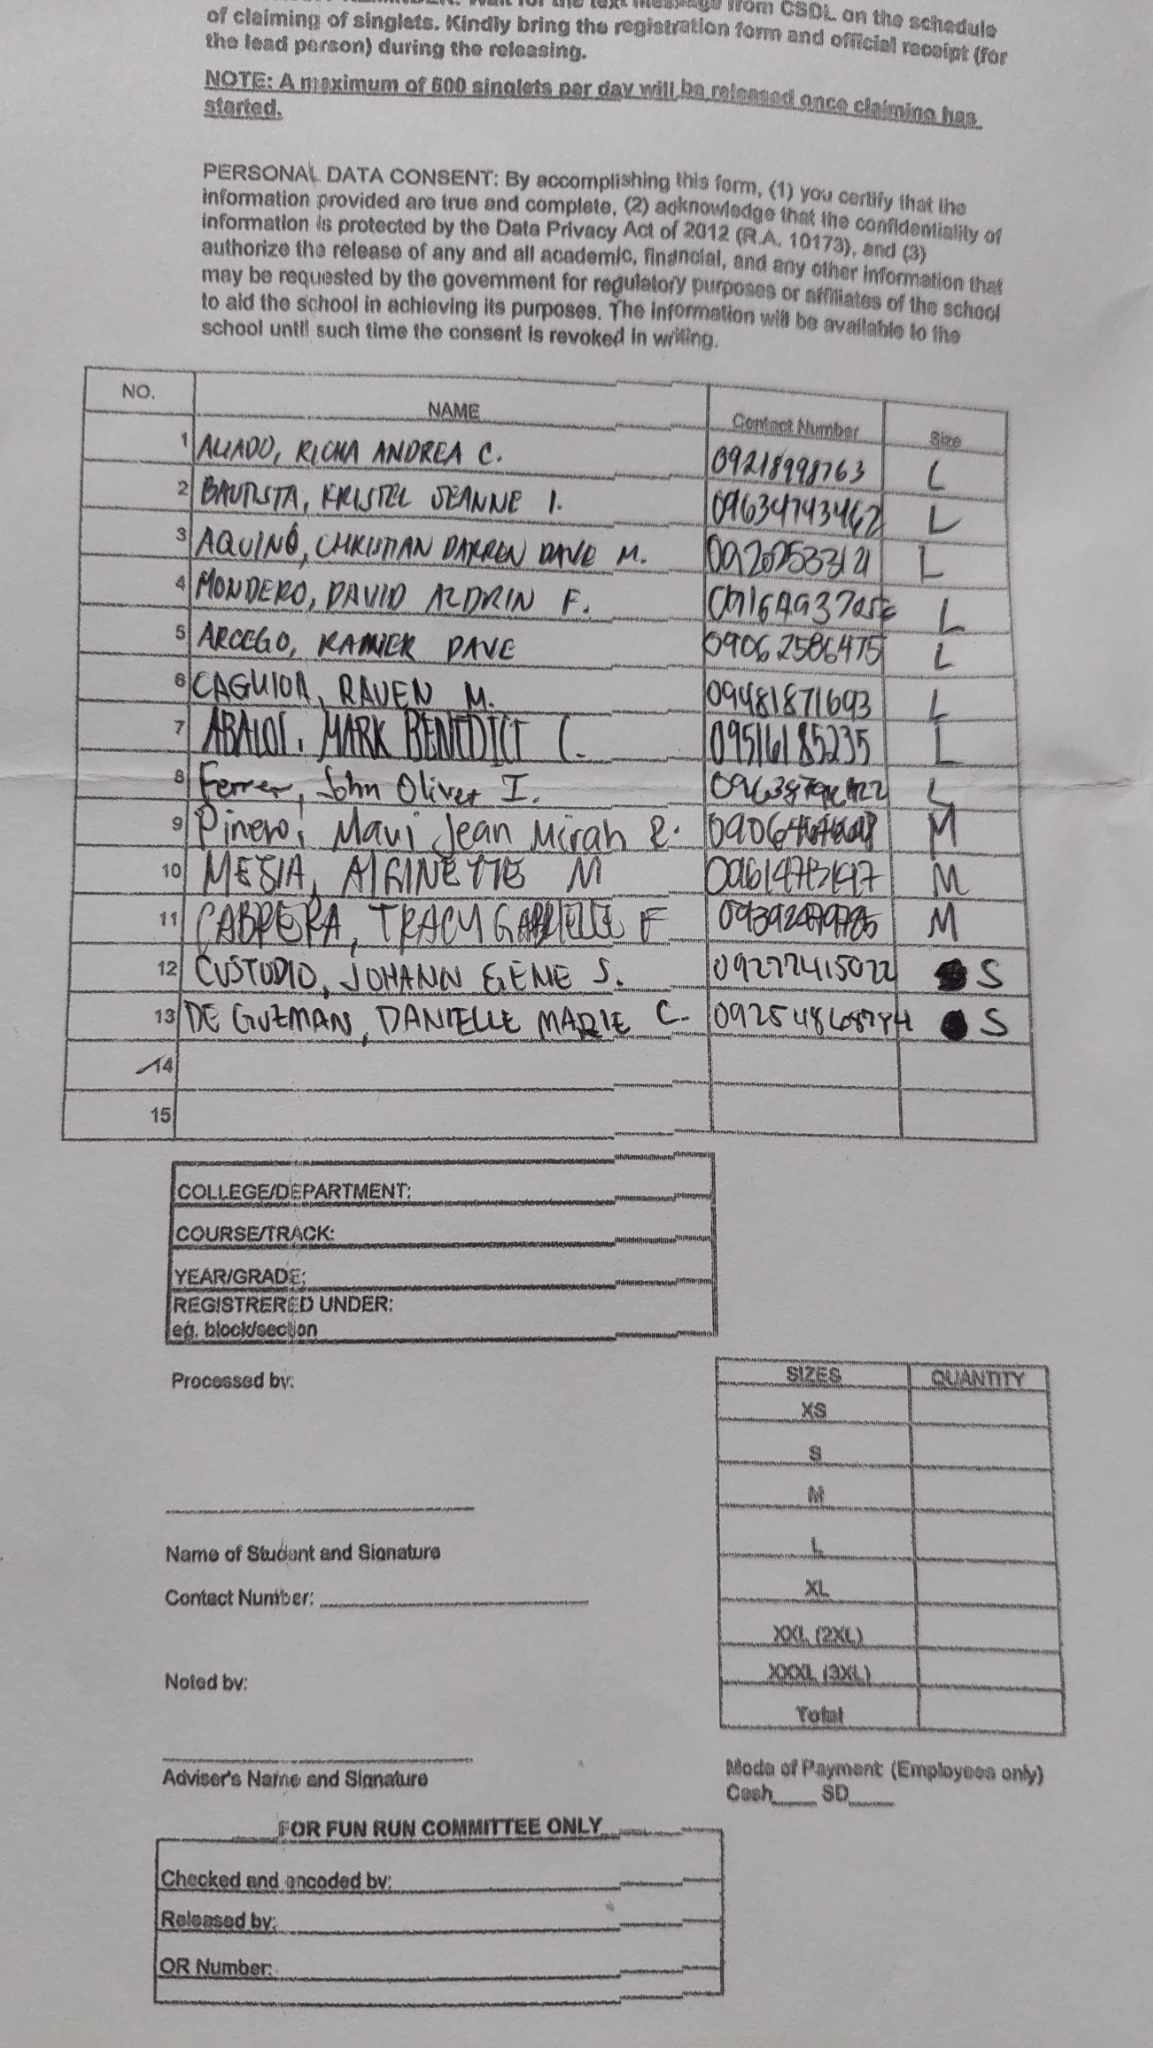 from CSDL on the schedule
of claiming of singlets. Kindly bring the registration form and official receipt (for
the lead person) during the releasing.
NOTE: A maximum of 600 singlets per day will be released once claiming has
started.
PERSONAL DATA CONSENT: By accomplishing this form, (1) you certify that the
information provided are true and complete, (2) acknowledge that the confidentiality of
information is protected by the Data Privacy Act of 2012 (R.A. 10173), and (3)
authorize the release of any and all academic, financial, and any other information that
may be requested by the government for regulatory purposes or affiliates of the school
to aid the school in achieving its purposes. The information will be available to the
school until such time the consent is revoked in writing.
NO. NAME Contact Number Size
1 ALIADO, RICHA ANDREA C. 09218998763 L
2 BAUTISTA, KRISTEL JEANNE I. 09634743462 L
3 AQUINO, CHRISTIAN DARREN DAVE M. L
4 MONDERO, DAVID ALDRIN F. L
5 ARCEGO, RAINIER DAVE 09062586475 L
6 CAGUIOA, RAVEN M. 09481871693 L
7 ABALOS, MARK BENEDICT C. 09516185235 L
8 Ferrer, John Oliver I. L
9 Pinero, Maui Jean Mirah R. M
10 MESIA, M M
11 CABRERA, TRACY GABRIELLE F M
12 CUSTODIO, JOHANN GENE S. 09277415022 S
13 DE GUZMAN, DANIELLE MARIE C. S
14
15
COLLEGE/DEPARTMENT:
COURSE/TRACK:
YEAR/GRADE:
REGISTRERED UNDER:
eg. block/section
Processed by:
SIZES QUANTITY
XS
S
M
L
XL
XXL (2XL)
XXXL (3XL)
Total
Name of Student and Signature
Contact Number:
Noted by:
Adviser's Name and Signature
Mode of Payment: (Employees only)
Cash____ SD____
FOR FUN RUN COMMITTEE ONLY
Checked and encoded by:
Released by:
OR Number: